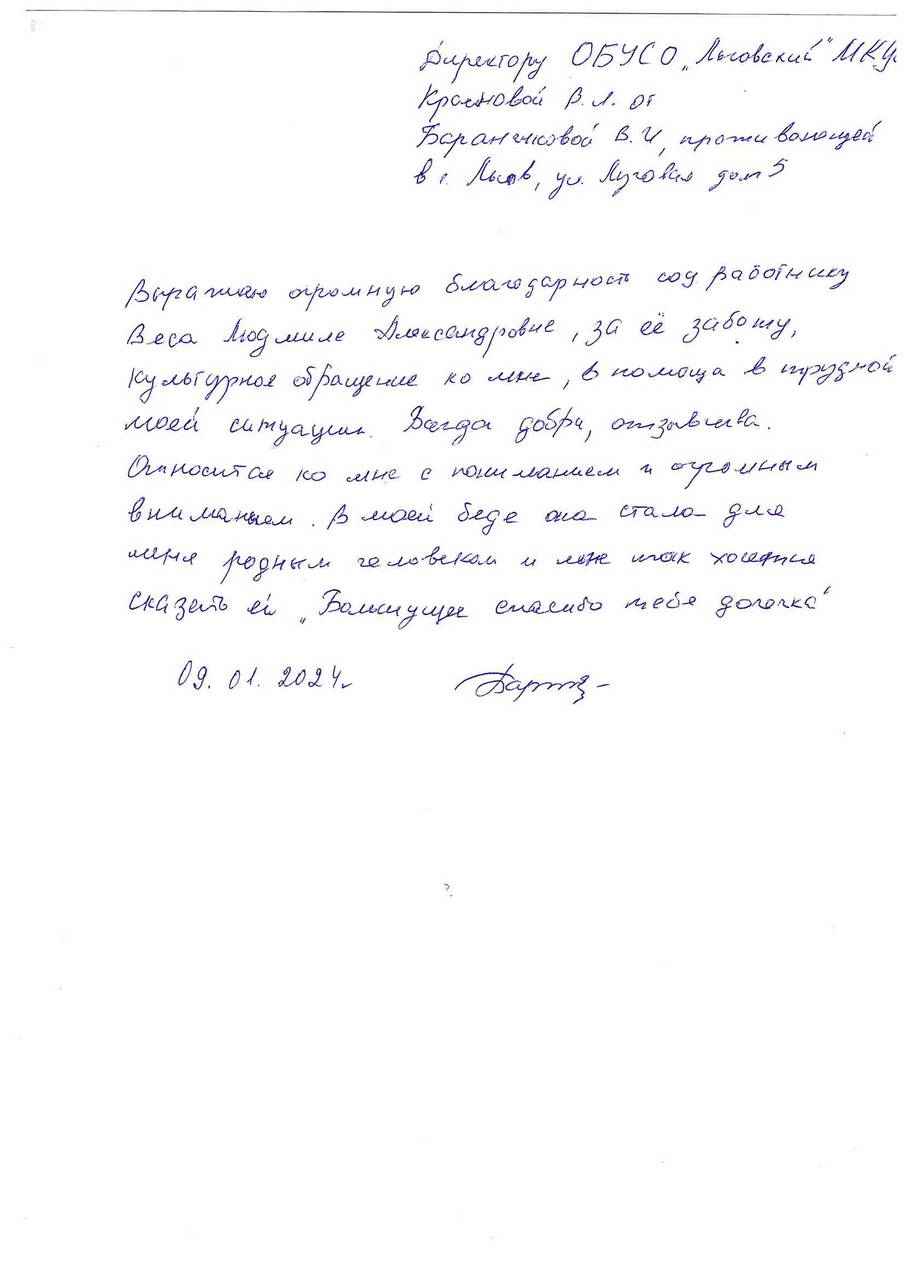 Директору ОБУСО „Льговский" МКЦ
В. Л. от
Баранчиковой В. И, проживающей
в г. Льгов, ул. Луговая дом 5
Выражаю огромную благодарность соц работнику
Веса Людмиле Александровне, за её заботу,
культурное обращение ко мне, в помощи в трудной
моей ситуации. Всегда добра, отзывчива.
Относится ко мне с пониманием и огромным
вниманием. В моей беде она стала для
меня родным человеком и мне так хочется
сказать ей „ спасибо тебе дочечка"
09. 01. 2024г